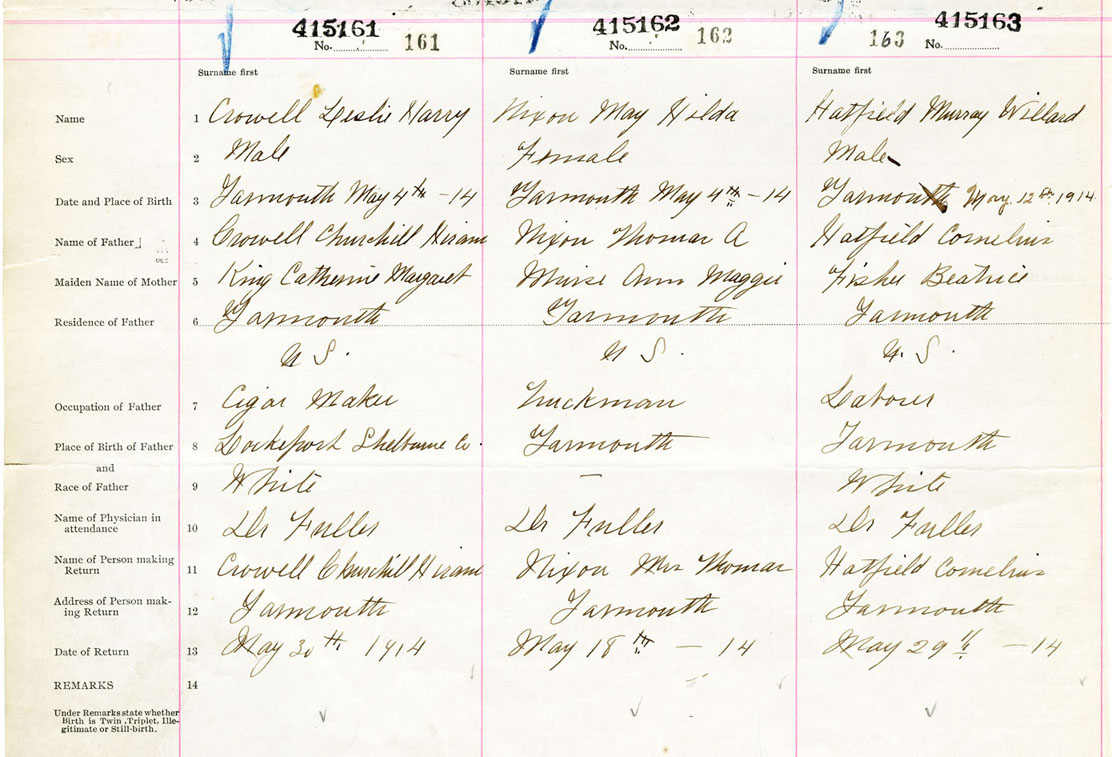 415161 415162 415163
No. 161 No. 162 163 No.
Surname first Surname first Surname first
Name 1 Crowell Leslie Harry Nixon May Hilda Hatfield Murray Willard
Sex 2 Male Female Male
Date and Place of Birth 3 Yarmouth May 4th -14 Yarmouth May 4th -14 Yarmouth May 12th 1914
Name of Father 4 Crowell Churchill Hiram Nixon Thomas A Hatfield Cornelius
Maiden Name of Mother 5 King Catherine Margaret Muise Ann Maggie Fisher Beatrice
Residence of Father 6 Yarmouth Yarmouth Yarmouth
N S. N S. N. S.
Occupation of Father 7 Cigar Maker Truckman Labourer
Place of Birth of Father 8 Lockeport Shelburne Co. Yarmouth Yarmouth
and
Race of Father 9 White — White
Name of Physician in
attendance 10 Dr Fuller Dr Fuller Dr Fuller
Name of Person making
Return 11 Crowell Churchill Hiram Nixon Mrs Thomas Hatfield Cornelius
Address of Person mak-
ing Return 12 Yarmouth Yarmouth Yarmouth
Date of Return 13 May 30th 1914 May 18th — 14 May 29th — 14
REMARKS 14
Under Remarks state whether
Birth is Twin, Triplet, Ille-
gitimate or Still-birth.